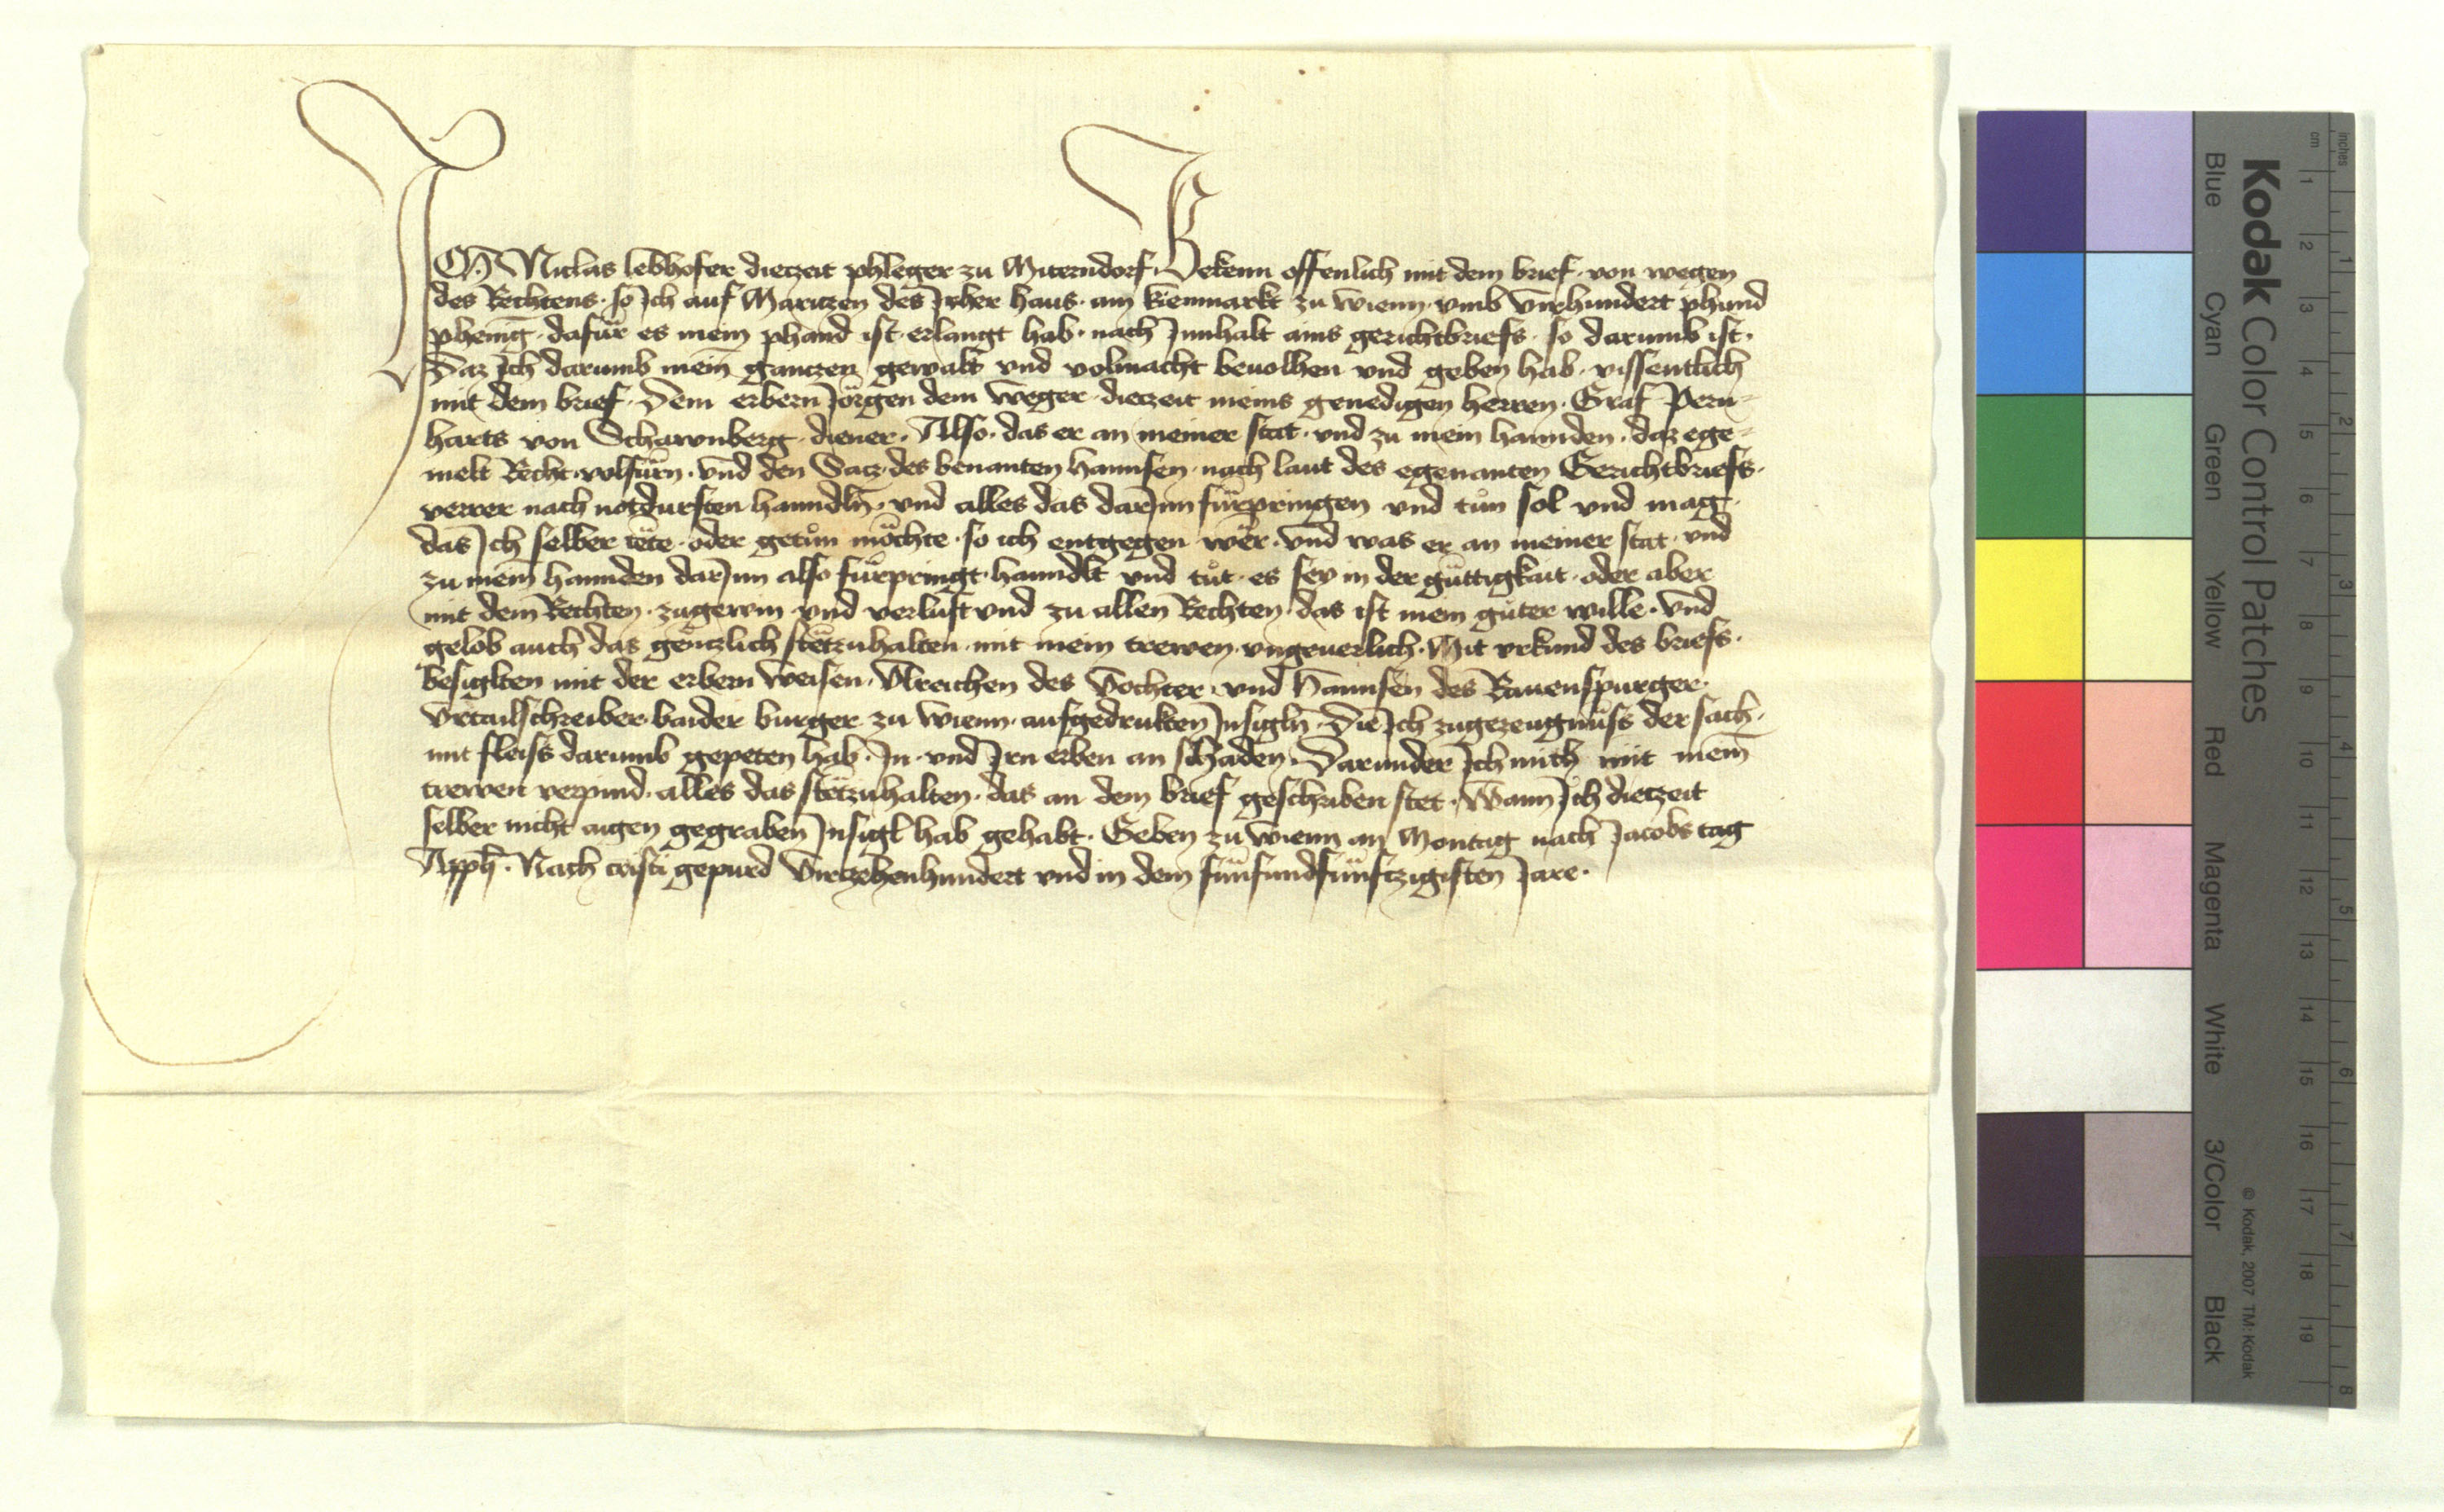 ICH Niclas lebhofer dietzeit phleger zu Miterndorf. Bekenn offenlich mit dem brief. von wegen
des Rechtens. so Ich auf Maritzen des Irher haus. am kienmarkt zu wienn. vmb virhundert phund
phenig. dafür es mein phand ist. erlangt hab. nach Innhalt ains gerichtbriefs. so darumb ist.
Daz Ich darumb mein gantzen gewalt vnd volmacht beuolhen vnd geben hab. wissentlich
mit dem brief. Dem erbern Jörgen dem weger. dietzeit meins genedigen herren. Graf Pern=
harts von Schawnberg. diener. Also. das er an meiner stat. vnd zu mein hannden. daz ege=
melt Recht. volfürn. vnd den Satz. des benanten hannsen. nach laut des egenanten Gerichtbriefs.
verrer nach notdurften hanndln. vnd alles das darInn fürpringen vnd tůn sol vnd mag.
das Ich selber tëte. oder getůn möchte. so ich entgegen wër. vnd was er an meiner stat. vnd
zu mein hannden darInn also fürpringt. hanndlt vnd tůt. es sey in der güttigkait. oder aber
mit dem Rechten. zugewin vnd verlust vnd zu allen Rechten. das ist mein gůter wille. vnd
gelob auch das gëntzlich stëtzuhalten. mit mein trewen. vngeuerlich. Mit vrkund des briefs.
besiglten mit der erbern weisen. Vlreichen des Vochter. vnd hannsen des Rauenspurger.
vrtailschreiber. baider burger zu wienn. aufgedrukten Insigln. Die Ich zugezeugnüss der sach.
mit fleiss darumb gepeten hab. In. vnd Irn erben an schaden. Darunder Ich mich mit mein
trewen verpind. alles das stëtzuhalten. das an dem brief geschriben stet. Wann Ich dietzeit
selber nicht aigen gegraben Insigl hab gehabt. Geben zu wienn an Montag nach Jacobs tag
Apph. Nach cristi gepurd virtzehenhundert vnd in dem fünfundfünftzigisten Jare.
Kodak Color Control Patches
Blue Cyan Green Yellow Red Magenta White 3/Color Black
© Kodak, 2007 TM: Kodak
cm 1 2 3 4 5 6 7 8 9 10 11 12 13 14 15 16 17 18 19
inches 1 2 3 4 5 6 7 8